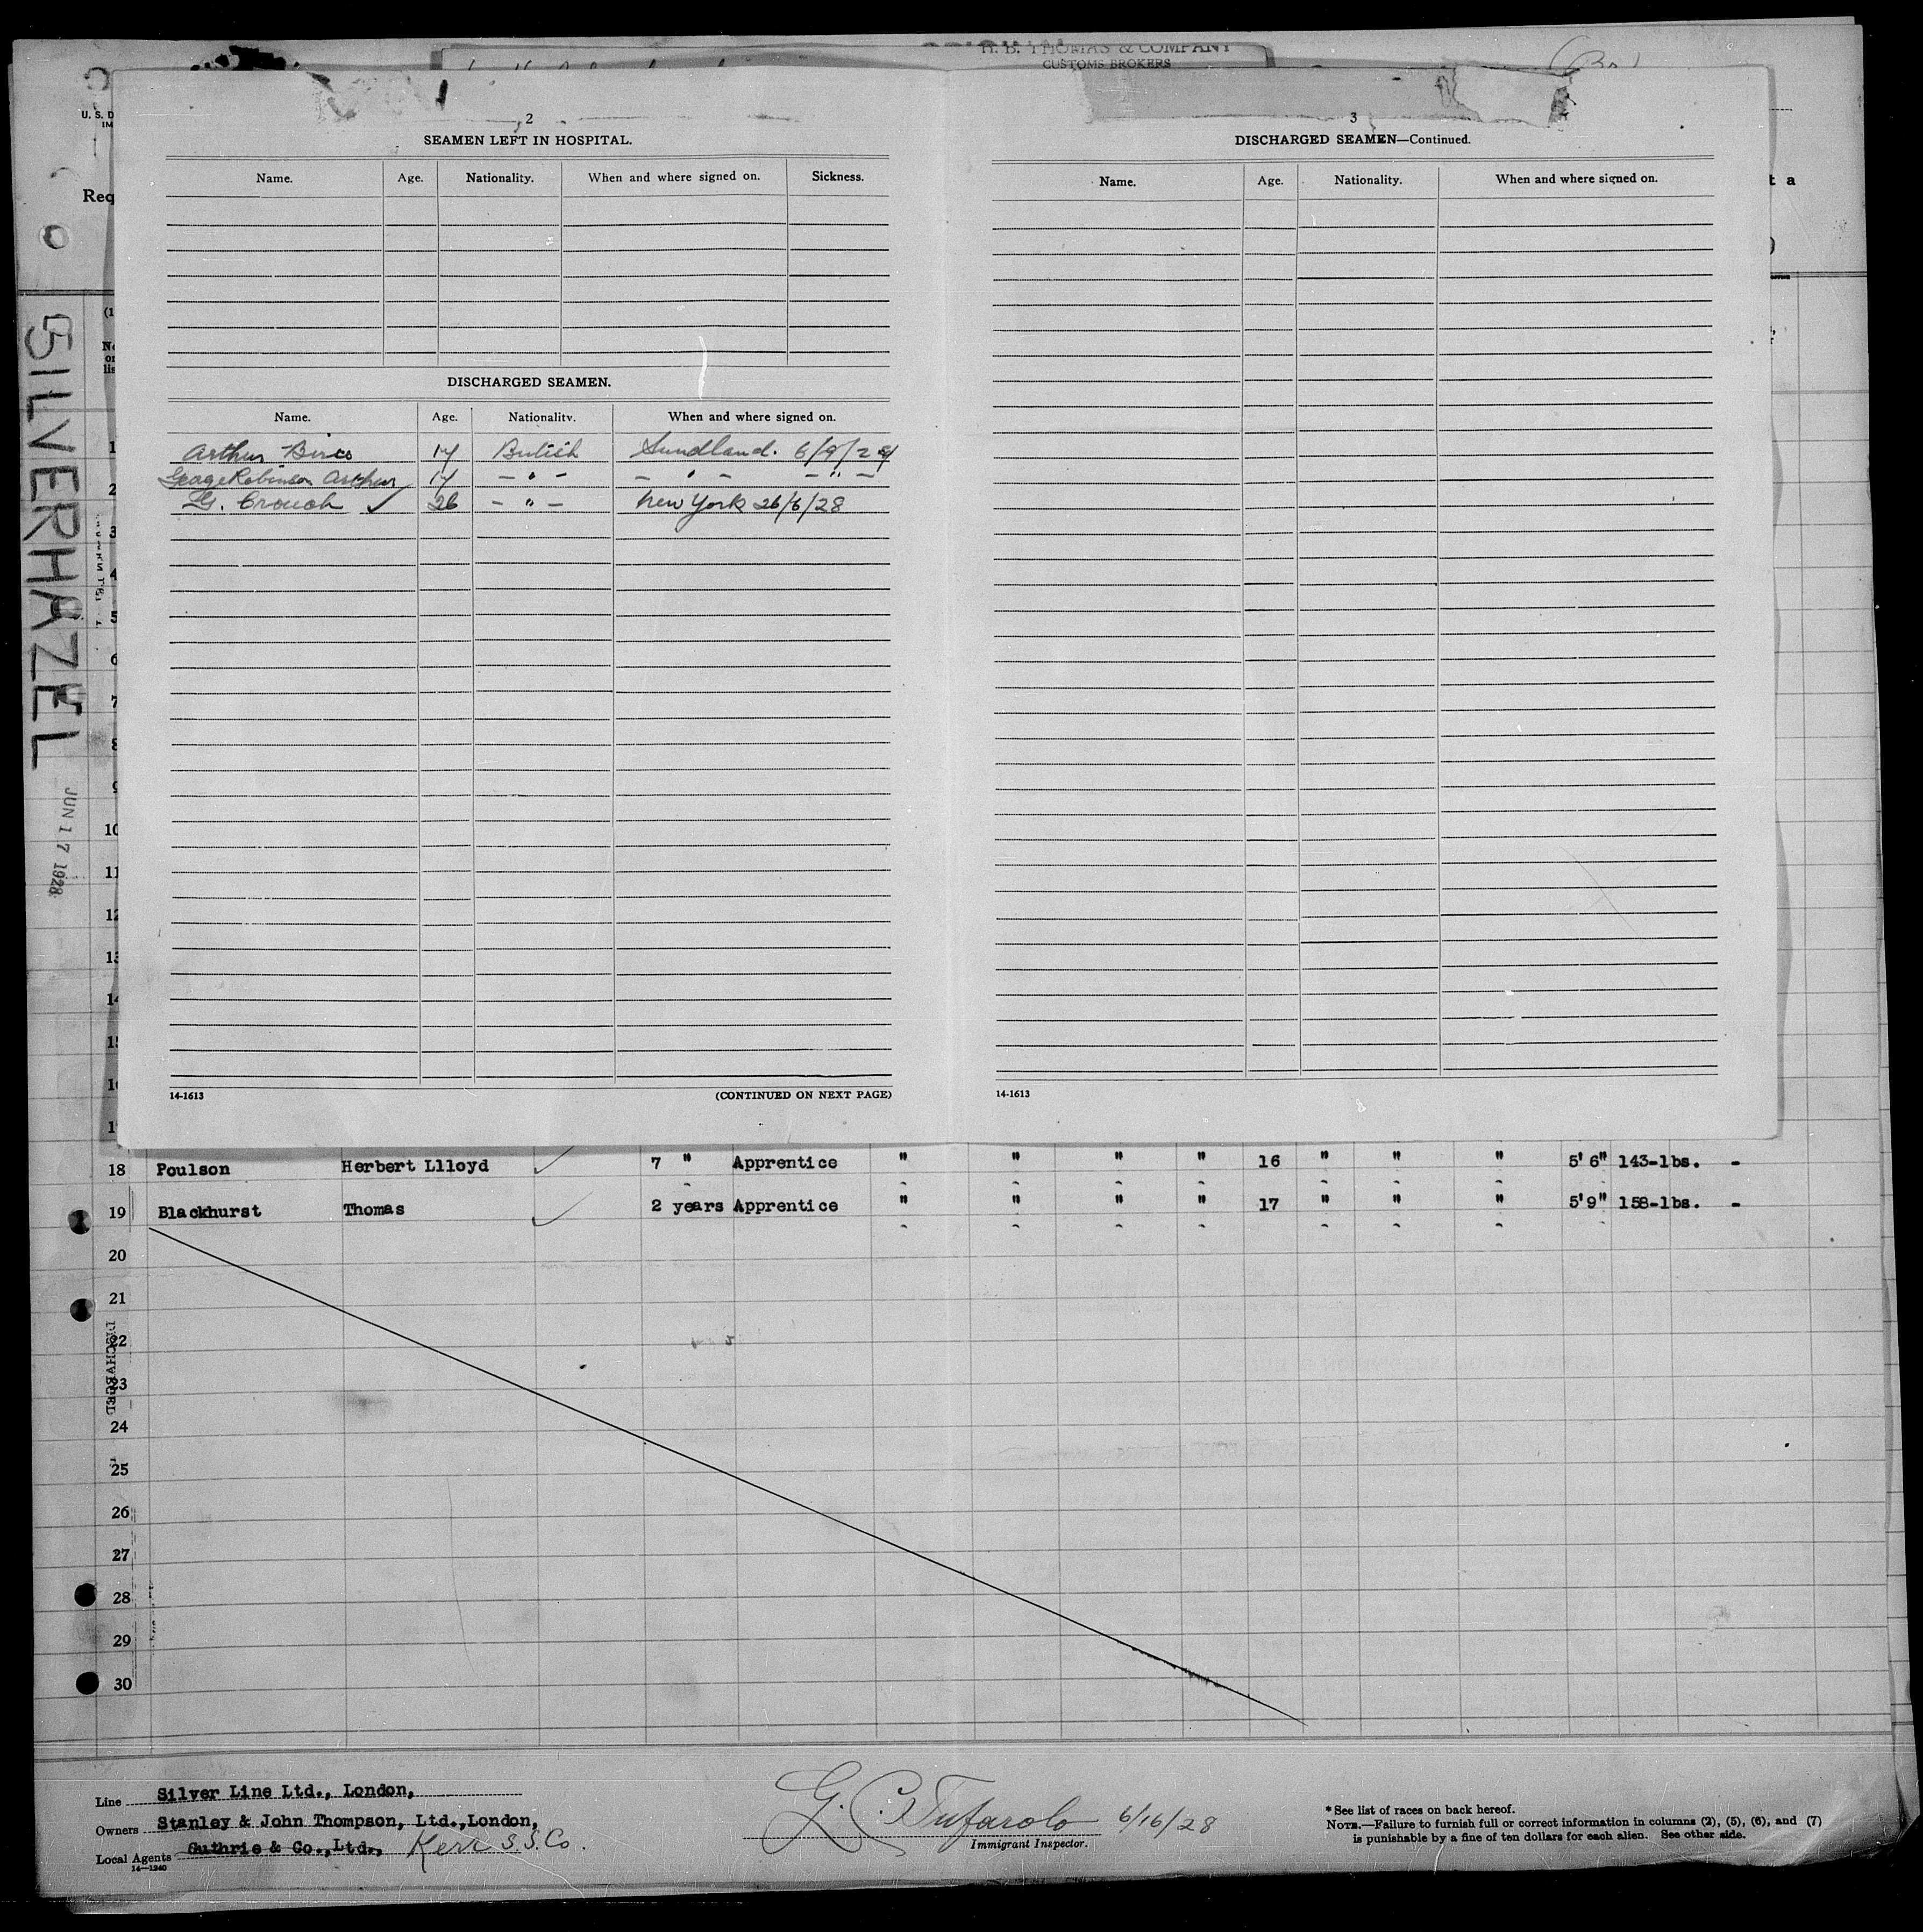 H. B. THOMAS & COMPANY
CUSTOMS BROKERS
U. S. D
IM
Req
t a
SILVERHAZEL
JUN 17 1928
2
SEAMEN LEFT IN HOSPITAL.
Name. Age. Nationality. When and where signed on. Sickness.
DISCHARGED SEAMEN.
Name. Age. Nationality. When and where signed on.
Arthur 17 British 6/9/2
George Robinson Arthur 17 - " - - " - - " -
G. Crouch ✓ 26 - " - New York 26/6/28
14-1613 (CONTINUED ON NEXT PAGE)
3
DISCHARGED SEAMEN—Continued.
Name. Age. Nationality. When and where signed on.
14-1613
1
2
3
4
5
6
7
8
9
10
11
12
13
14
15
16
1
18 Poulson Herbert Llloyd ✓ 7 " Apprentice " " " " 16 " " " 5'6" 143-lbs. -
19 Blackhurst Thomas ✓ 2 years Apprentice " " " " 17 " " " 5'9" 158-lbs. -
20
21
22
23
24
25
26
27
28
29
30
DISCHARGED
Line Silver Line Ltd., London,
Owners Stanley & John Thompson, Ltd.,London,
Local Agents Guthrie & Co.,Ltd., Kerr S.S. Co.
14—1240
G. C. Tufarolo 6/16/28
Immigrant Inspector.
* See list of races on back hereof.
NOTE.—Failure to furnish full or correct information in columns (2), (5), (6), and (7)
is punishable by a fine of ten dollars for each alien. See other side.